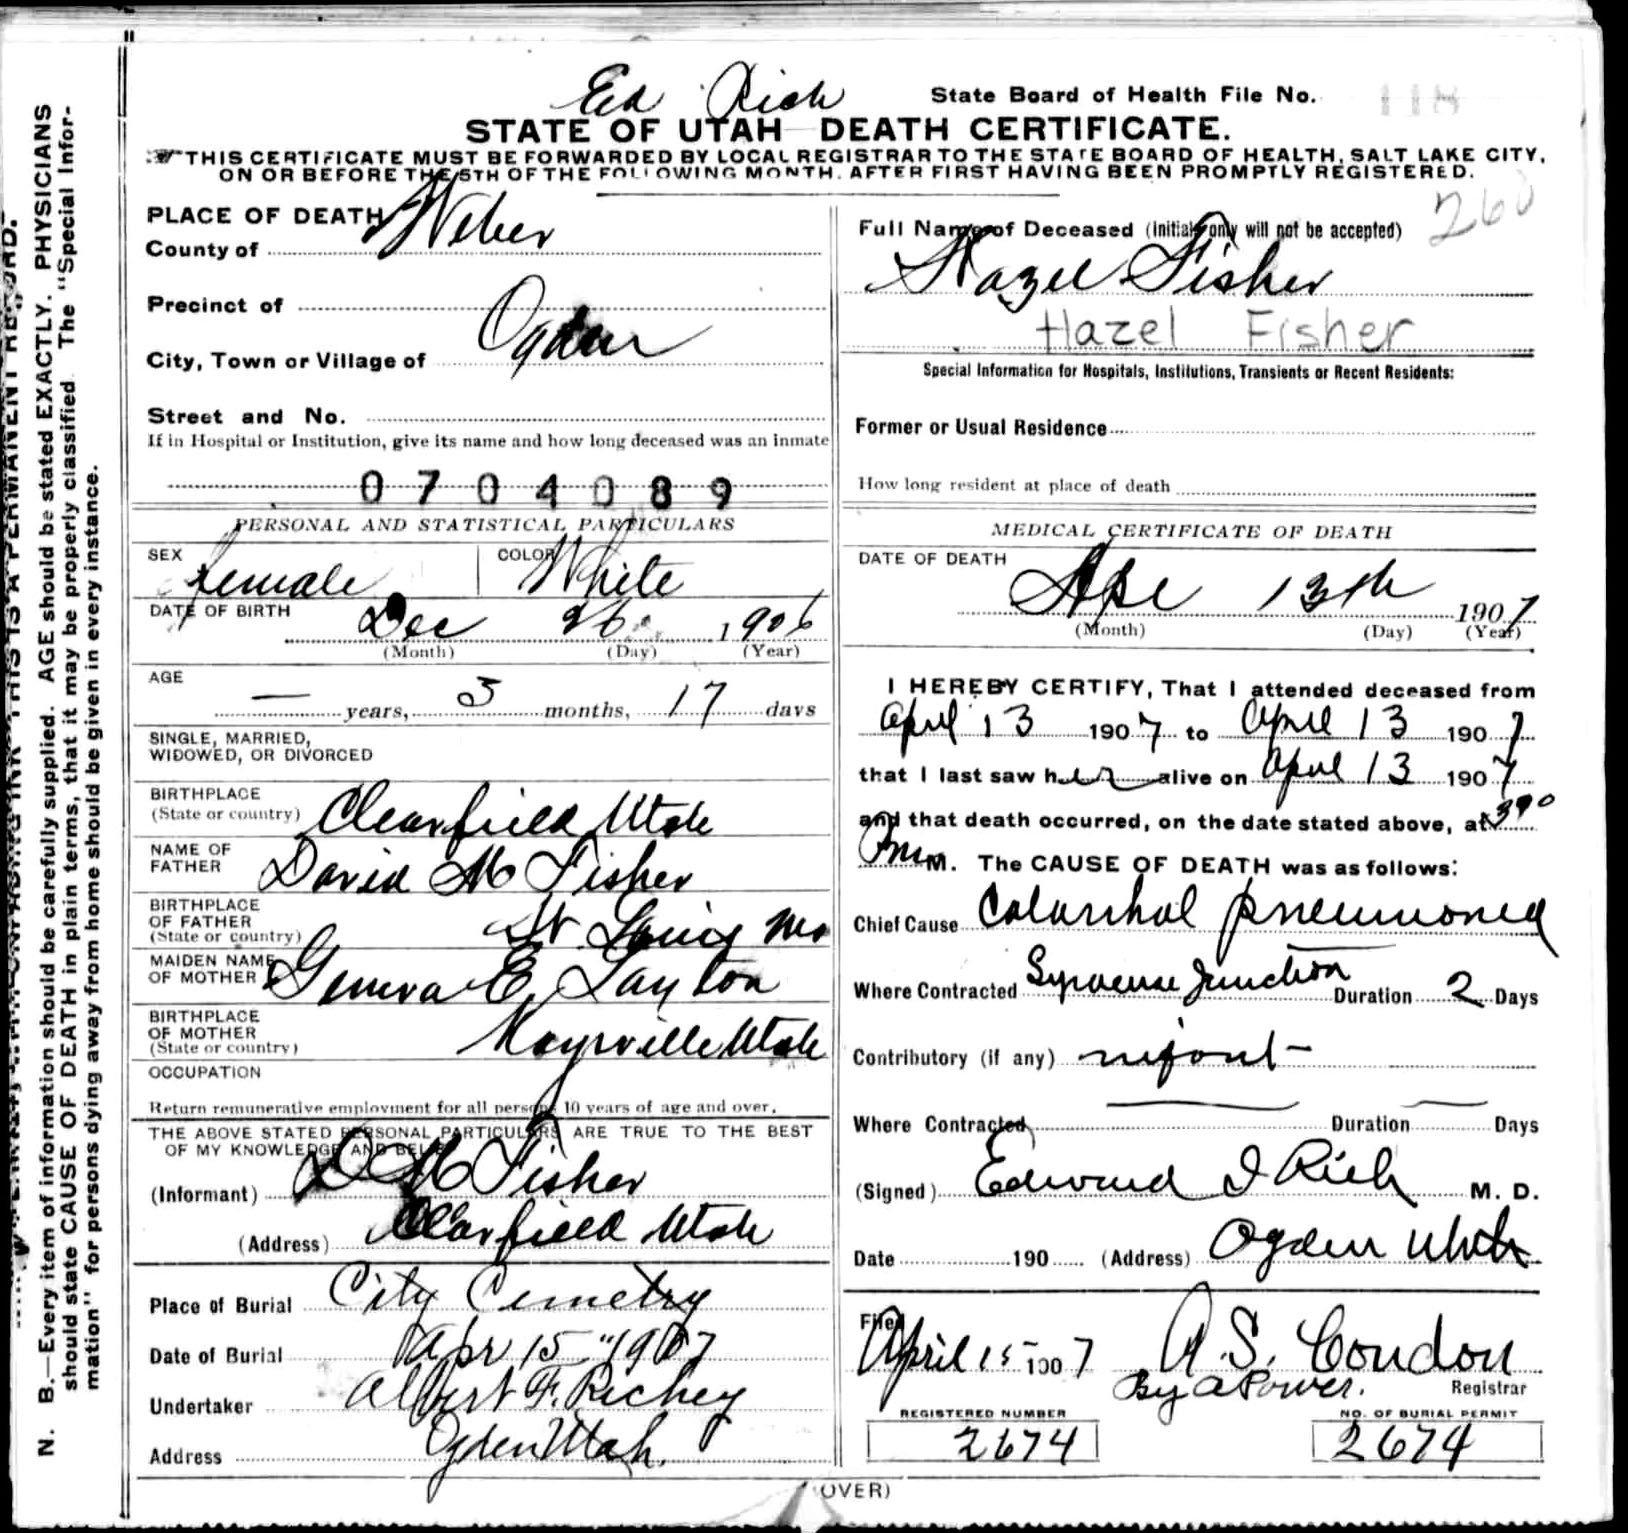 Ed Rich
State Board of Health File No. 118
STATE OF UTAH DEATH CERTIFICATE.
THIS CERTIFICATE MUST BE FORWARDED BY LOCAL REGISTRAR TO THE STATE BOARD OF HEALTH, SALT LAKE CITY,
ON OR BEFORE THE 5TH OF THE FOLLOWING MONTH, AFTER FIRST HAVING BEEN PROMPTLY REGISTERED.
260
PLACE OF DEATH
County of Weber
Precinct of
City, Town or Village of Ogden
Street and No.
If in Hospital or Institution, give its name and how long deceased was an inmate
0704089
PERSONAL AND STATISTICAL PARTICULARS
SEX female COLOR White
DATE OF BIRTH Dec 26 1906
(Month) (Day) (Year)
AGE
— years, 3 months, 17 days
SINGLE, MARRIED,
WIDOWED, OR DIVORCED
BIRTHPLACE
(State or country) Clearfield Utah
NAME OF
FATHER David M Fisher
BIRTHPLACE
OF FATHER
(State or country) St Louis Mo
MAIDEN NAME
OF MOTHER Geneva E. Layton
BIRTHPLACE
OF MOTHER
(State or country) Kaysville Utah
OCCUPATION
Return remunerative employment for all persons 10 years of age and over.
THE ABOVE STATED PERSONAL PARTICULARS ARE TRUE TO THE BEST
OF MY KNOWLEDGE AND BELIEF
(Informant) D M Fisher
(Address) Clearfield Utah
Place of Burial City Cemetry
Date of Burial Apr 15 " 1907
Undertaker Albert F. Richey
Address Ogden Utah.
Full Name of Deceased (Initials only will not be accepted)
Hazel Fisher
Hazel Fisher
Special Information for Hospitals, Institutions, Transients or Recent Residents:
Former or Usual Residence
How long resident at place of death
MEDICAL CERTIFICATE OF DEATH
DATE OF DEATH
Apl 13th 1907
(Month) (Day) (Year)
I HEREBY CERTIFY, That I attended deceased from
April 13 1907 to April 13 1907
that I last saw her alive on April 13 1907
and that death occurred, on the date stated above, at 3
Pm M. The CAUSE OF DEATH was as follows:
Chief Cause Catarrhal pneumonia
Where Contracted Syracuse Junction Duration 2 Days
Contributory (if any) infant
Where Contracted — Duration — Days
(Signed) Edward I Rich M. D.
Date 190 (Address) Ogden Utah
Filed
April 15 1907 A. S. Condon
By A Power. Registrar
REGISTERED NUMBER NO. OF BURIAL PERMIT
2674 2674
(OVER)
N. B.—Every item of information should be carefully supplied. AGE should be stated EXACTLY. PHYSICIANS
should state CAUSE OF DEATH in plain terms, that it may be properly classified. The "Special Infor-
mation" for persons dying away from home should be given in every instance.
THIS IS A PERMANENT RECORD.